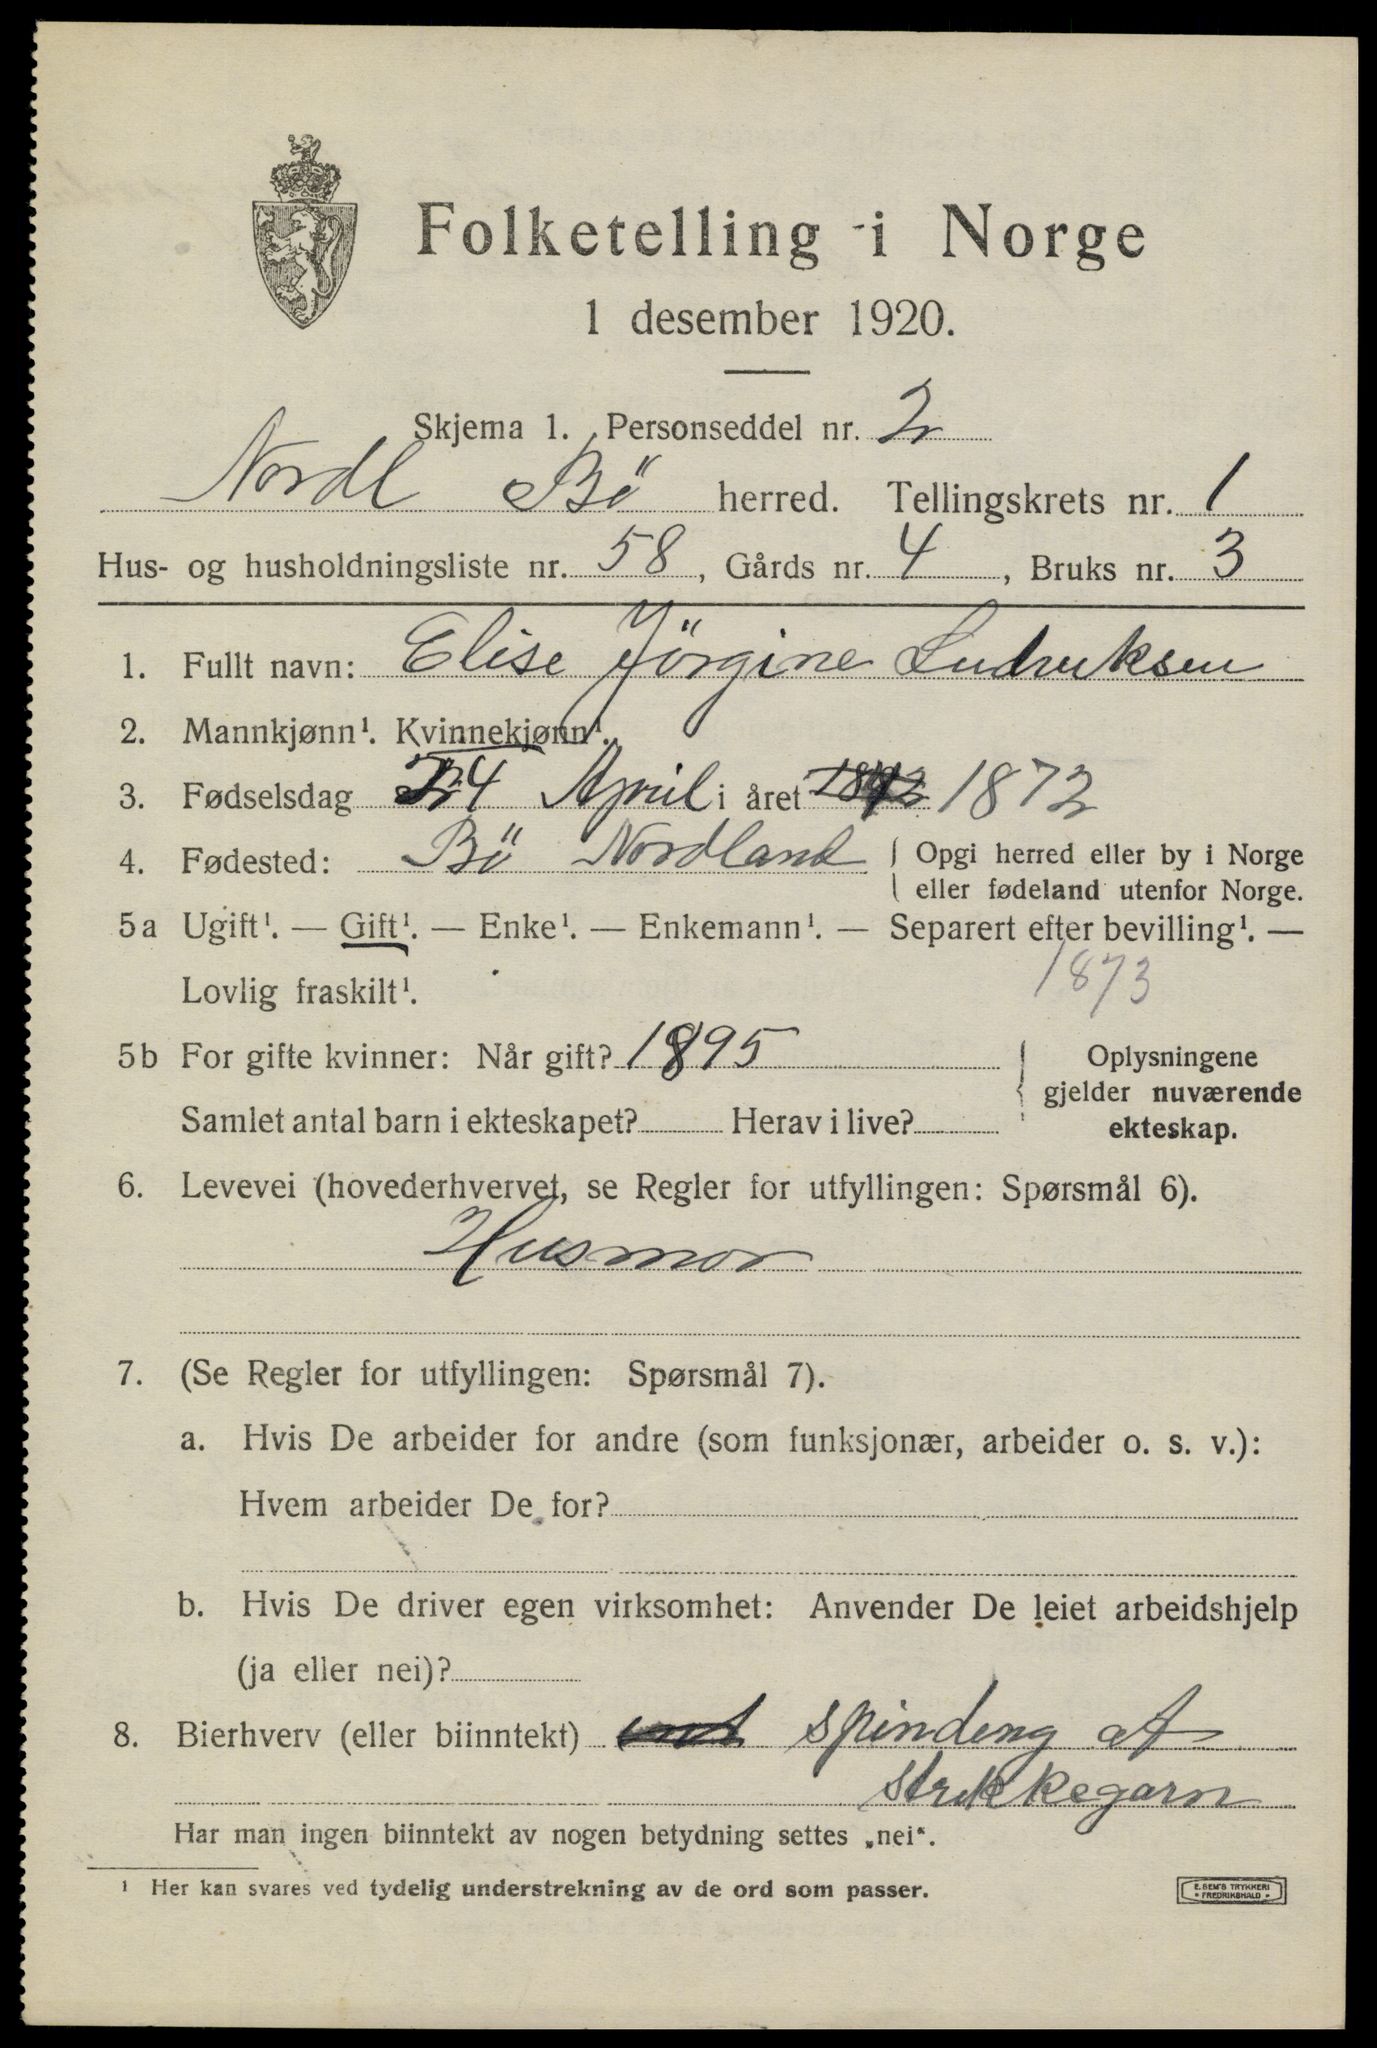 Folketelling i Norge
1 desember 1920.
Skjema 1. Personseddel nr. 2
Nordl Bö herred. Tellingskrets nr. 1
Hus- og husholdningsliste nr. 58, Gårds nr. 4, Bruks nr. 3
1. Fullt navn: Elise Jörgine Ludviksen
2. Mannkjønn¹. Kvinnekjønn¹.
3. Fødselsdag 24 April i året 1872
4. Fødested: Bö Nordland { Opgi herred eller by i Norge
eller fødeland utenfor Norge.
5a Ugift¹. — Gift¹. — Enke¹. — Enkemann¹. — Separert efter bevilling¹. —
Lovlig fraskilt¹. 1873
5b For gifte kvinner: Når gift? 1895
Samlet antal barn i ekteskapet? Herav i live?
Oplysningene
gjelder nuværende
ekteskap.
6. Levevei (hovederhvervet, se Regler for utfyllingen: Spørsmål 6).
Husmor
7. (Se Regler for utfyllingen: Spørsmål 7).
a. Hvis De arbeider for andre (som funksjonær, arbeider o. s. v.):
Hvem arbeider De for?
b. Hvis De driver egen virksomhet: Anvender De leiet arbeidshjelp
(ja eller nei)?
8. Bierhverv (eller biinntekt) spindeng af
strekkegarn
Har man ingen biinntekt av nogen betydning settes „nei".
¹ Her kan svares ved tydelig understrekning av de ord som passer.
E. SEM'S TRYKKERI
FREDRIKSHALD